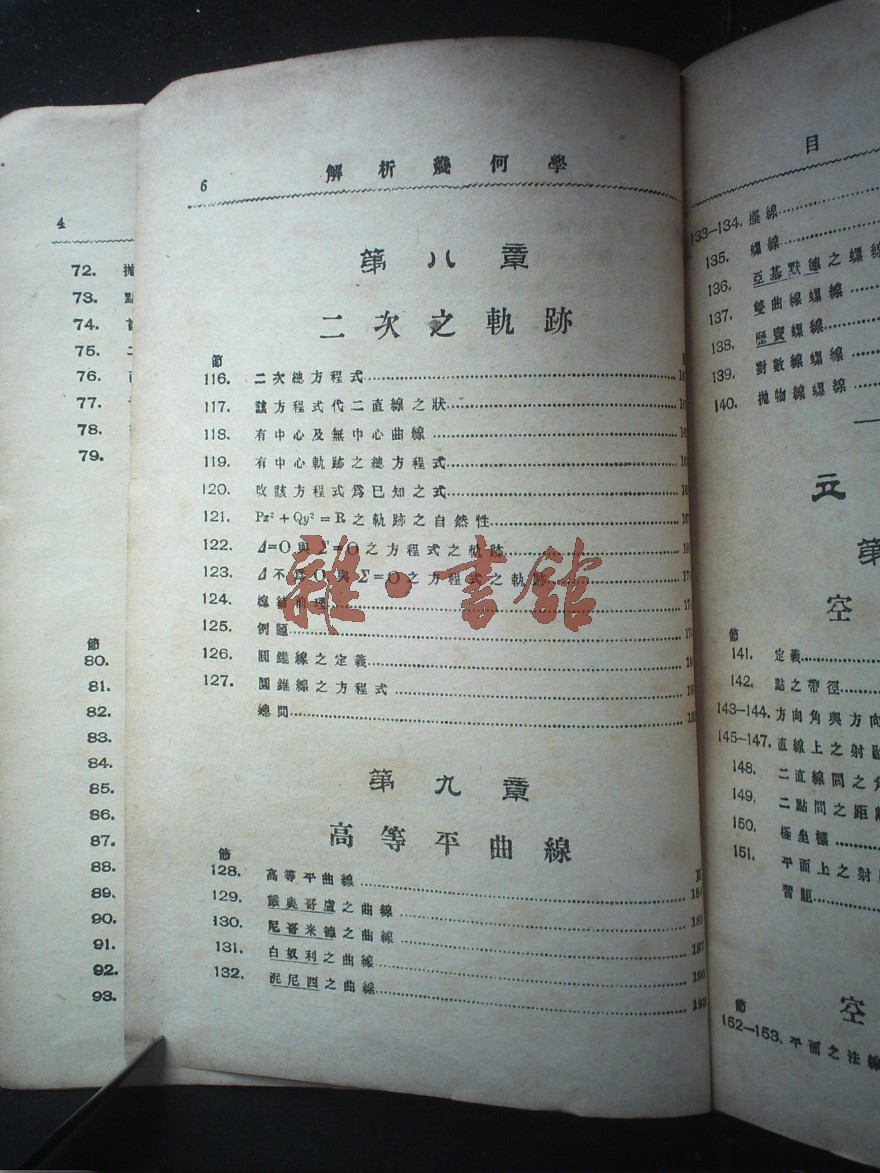 4
72.
73.
74.
75. 二
76.
77.
78.
79.
節
80.
81.
82.
83.
84.
85.
86.
87.
88.
89.
90.
91.
92.
93.
6 解析幾何學
第八章
二次之軌跡
節
116. 二次總方程式
117. 該方程式代二直線之狀
118. 有中心及無中心曲線
119. 有中心軌跡之總方程式
120. 改該方程式爲已知之式
121. Px²+Qy²=R之軌跡之自然性
122. Δ=O與Σ=O之方程式之軌跡
123. Δ不爲O與Σ=O之方程式之軌跡
124.
125. 例題
126. 圓錐線之定義
127. 圓錐線之方程式
總問
雜·書館
第九章
高等平曲線
節 頁
128. 高等平曲線 184
129. 奥哥盧之曲線 185
130. 尼哥米德之曲線 187
131. 白奴利之曲線 190
132. 尼西之曲線 193
目
133—134. 擺線
135. 螺線
136. 亞基默德之螺線
137. 雙曲線螺線
138. 螺線
139. 對數線螺線
140. 拋物線螺線
立
第
空
節
141. 定義
142. 點之帶徑
143—144. 方向角與方向
145—147. 直線上之射
148. 二直線間之
149. 二點間之距
150. 極坐標
151. 平面上之射
習題
空
節
152—153. 平面之法線